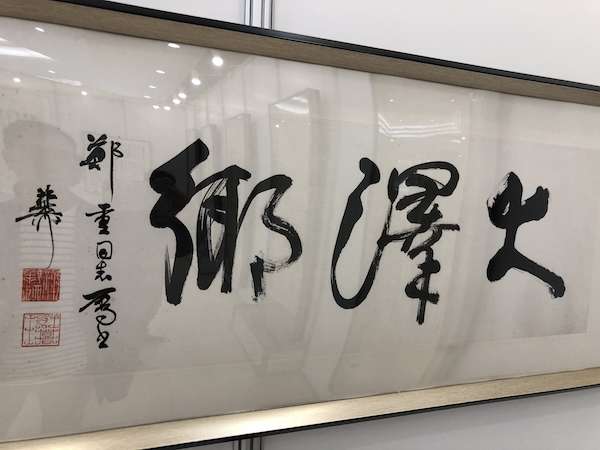 大澤鄉
鄭重同志屬書